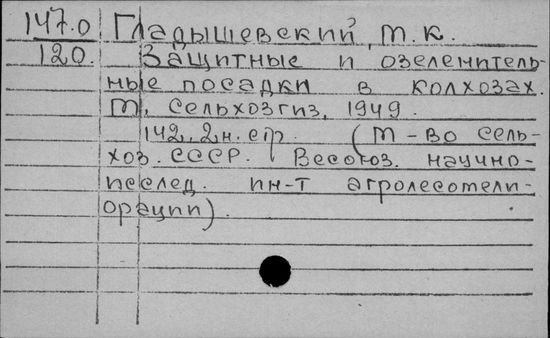 147.0 Гладышевский, М. К.
120. Защитные и озеленитель-
ные посадки в колхозах.
М., Сельхозгиз, 1949.
142, 2 н. стр. (М-во сель-
хоз. СССР. Всесоюз. научно-
исслед. ин-т агролесомели-
орации).